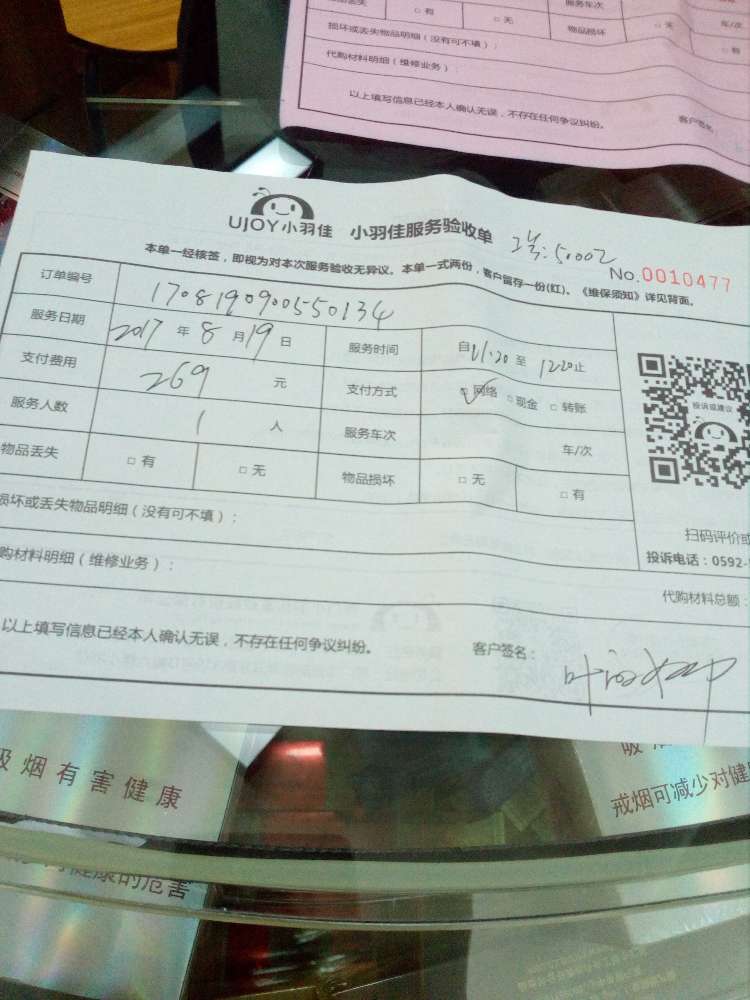 □ 有
□ 无
物品损坏
□ 无
车/次
□ 有
损坏或丢失物品明细（没有可不填）：
代购材料明细（维修业务）：
以上填写信息已经本人确认无误，不存在任何争议纠纷。
客户签名
UJOY小羽佳 小羽佳服务验收单
No.0010477
本单一经核签，即视为对本次服务验收无异议。本单一式两份，客户留存一份(红)。《维保须知》详见背面。
订单编号 170819090550134
服务日期 2017 年 8 月 19 日 服务时间 自11:20 至 12:20止
支付费用 269 元 支付方式 ☑ 网络 □ 现金 □ 转账
服务人数 1 人 服务车次 车/次
物品丢失 □ 有 □ 无 物品损坏 □ 无 □ 有
投诉或建议
损坏或丢失物品明细（没有可不填）：
扫码评价或
投诉电话：0592-
购材料明细（维修业务）：
代购材料总额：
以上填写信息已经本人确认无误，不存在任何争议纠纷。
客户签名：
吸烟有害健康
戒烟可减少对健
健康的危害